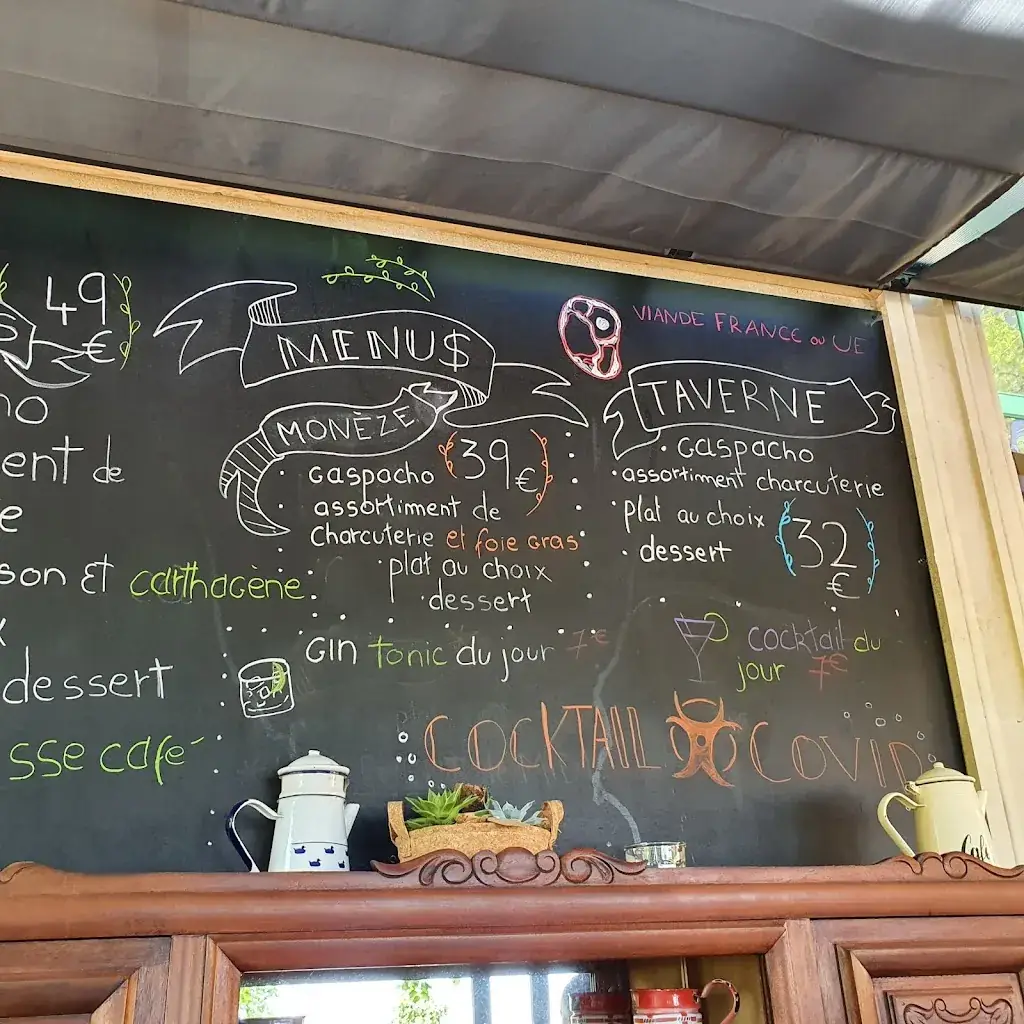 49
€
ent de
son et carthagène
dessert
sse café
MENU$
MONÈZE
39
€
gaspacho
assortiment de
charcuterie et foie gras
plat au choix
dessert
Gin tonic du jour 7€
VIANDE FRANCE ou UE
TAVERNE
gaspacho
assortiment charcuterie
plat au choix
dessert
32
€
cocktail du
jour 7€
COCKTAIL COVID
Café